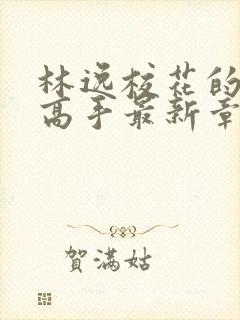 林逸校花的
高手最新章
賀滿姑